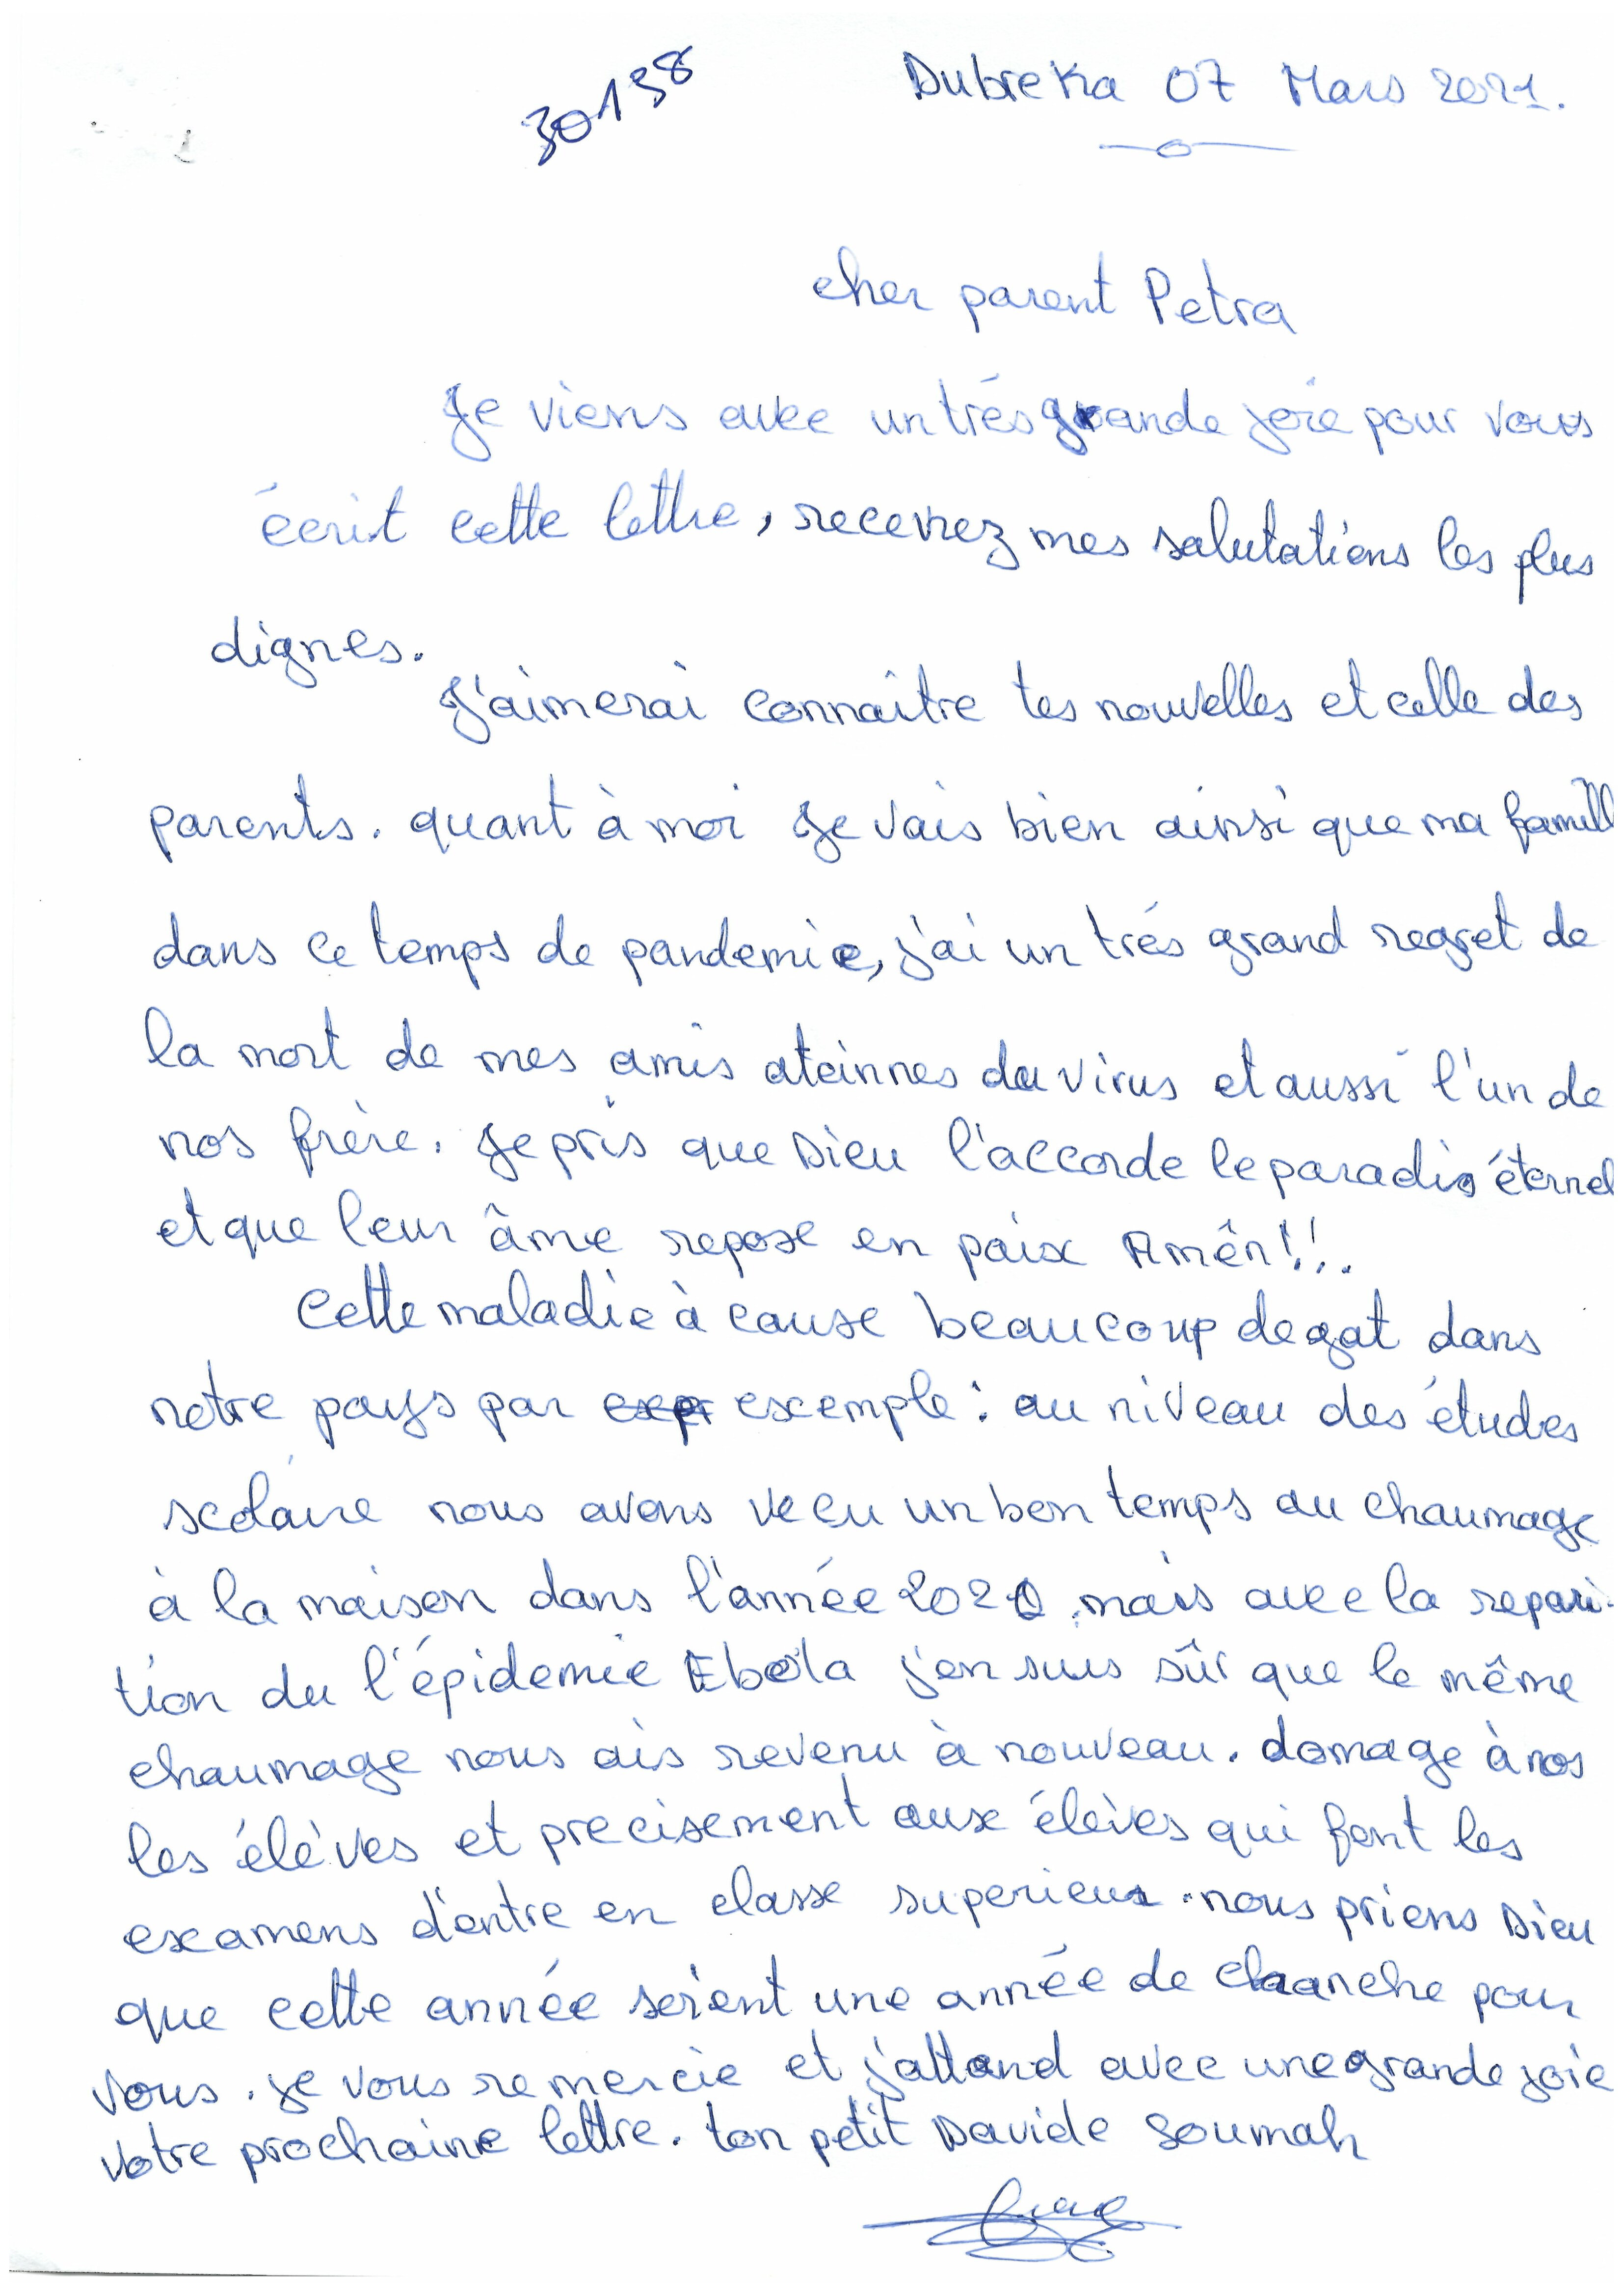 30138
Dubreka 07 Mars 2021.
cher parent Petra
Je viens avec un très grande joie pour vous
écrit cette lettre, recevrez mes salutations les plus
dignes.
J'aimerai connaitre tes nouvelles et celle des
parents. quant à moi je vais bien ainsi que ma famill
dans ce temps de pandemie, j'ai un trés grand regret de
la mort de mes amis ateinnes du virus et aussi l'un de
nos frère. Je pris que Dieu l'accorde le paradis éternel
et que leur âme repose en paix Amên!!.
Cette maladie à cause beaucoup degat dans
notre pays par exemple : au niveau des études
scolaire nous avons vecu un bon temps au chaumage
à la maison dans l'année 2020, mais avec la repari-
tion du l'épidemie Ebola j'en suis sûr que le même
chaumage nous ais revenu à nouveau. domage à nos
les élèves et precisement aux élèves qui font les
examens d'entre en classe superieur. nous prions Dieu
que cette année seient une année de chanche pour
vous. je vous remercie et j'attand avec une grande joie
votre prochaine lettre. ton petit Davide Soumah